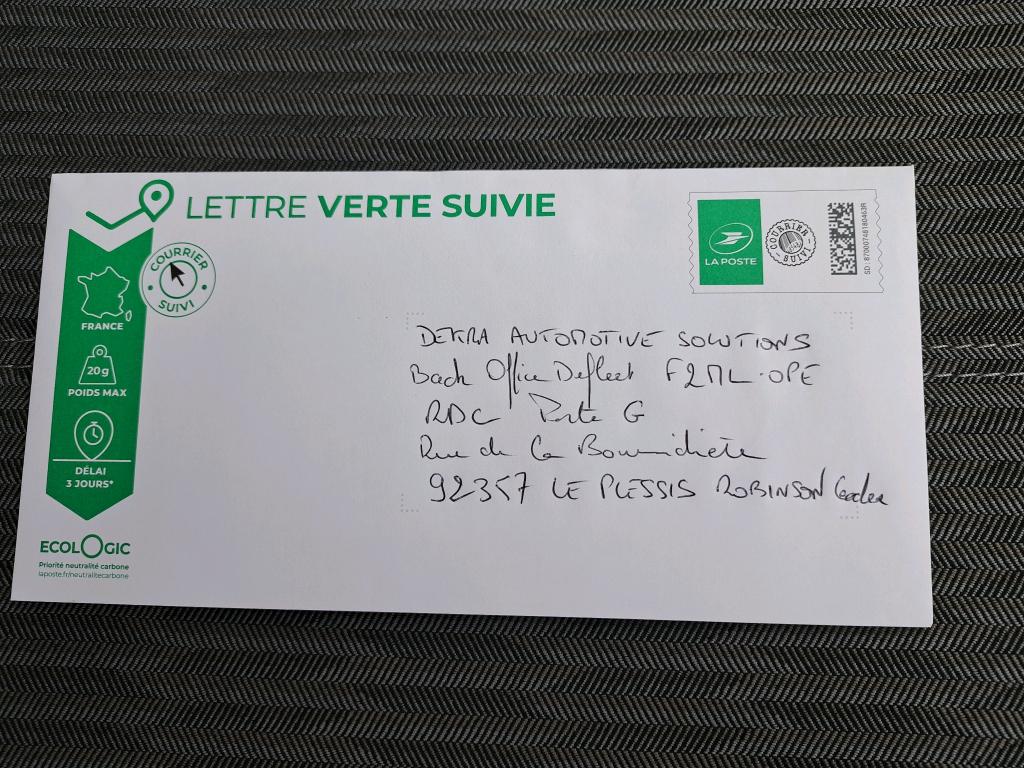 LETTRE VERTE SUIVIE
COURRIER SUIVI
FRANCE
20g
POIDS MAX
DÉLAI
3 JOURS*
ECOLOGIC
Priorité neutralité carbone
laposte.fr/neutralitecarbone
LA POSTE
COURRIER SUIVI
SD : 87000748180463R
DEKRA AUTOMOTIVE SOLUTIONS
Back Office Defleet F2ML-OPE
RDC Porte G
Rue de la
92357 LE PLESSIS ROBINSON Cedex